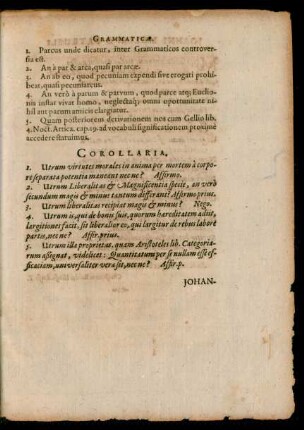 GRAMMATICÆ.
1. Parcus unde dicatur, inter Grammaticos controver-
sia est.
2. An à par & arca, quasi par arcæ.
3. An ab eo, quod pecuniam expendi sive erogati prohi-
beat, quasi pecuniarcus.
4. An verò à parum & parvum, quod parce atq; Euclio-
nis instar vivat homo, neglectaq; omni oportunitate ni-
hil aut parum amicis elargiatur.
5. Quam posteriorem derivationem nos cum Gellio lib.
4. Noct. Attica. cap. ad vocabuli significationem proximè
accedere statuimus.
COROLLARIA.
1. Utrum virtutes morales in anima per mortem à corpo-
re separata potentia maneant nec ne? Affirmo.
2. Utrum Liberalitas & Magnificentia specie, an verò
secundum magis & minus tantum differant? Affirmo prius.
3. Utrum liberalitas recipiat magis & minus? Nego.
4. Utrum is, qui de bonis suis, quorum hæreditatem adiit,
largitiones facit, sit liberalior eo, qui largitur de rebus labore
partis, nec ne? Affir. prius.
5. Utrum illa proprietas, quam Aristoteles lib. Categoria-
rum assignat, videlicet: Quantitatum per se nullam esse ef-
ficaciam, universaliter vera sit, nec ne? Affir. p.
JOHAN-